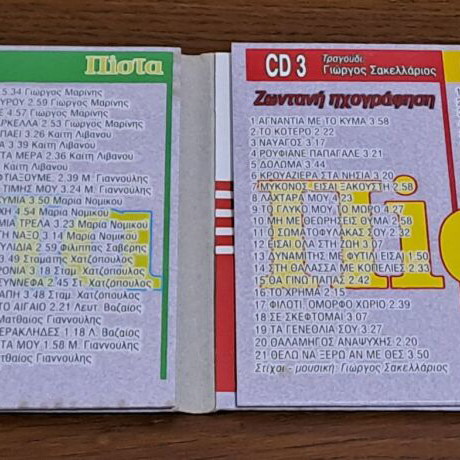 Πίστα
5.34 Γιώργος Μαρίνης
ΥΡΟΥ 2.59 Γιώργος Μαρίνης
Ε 4.57 Γιώργος Μαρίνης
ΑΡΚΕΛΛΑ 2.53 Γιώργος Μαρίνης
ΠΑΕΙ 3.26 Καίτη Λιβανού
Α 3.39 Καίτη Λιβανού
ΤΑ ΜΕΡΑ 2.36 Καίτη Λιβανού
Καίτη Λιβανού
ΦΤΙΑΞΟΥΜΕ. 2.39 Μ. Γιαννούλης
ΤΙΜΗΣ ΜΟΥ 3.24 Μ. Γιαννούλης
ΥΜΙΑ 3.50 Μαρία Νομικού
ΧΗ 4.54 Μαρία Νομικού
ΜΙΑ ΤΡΕΛΑ 3.23 Μαρία Νομικού
ΤΗ ΝΑΞΟ 3.14 Μαρία Νομικού
ΥΛΙΔΙΑ 2.59 Φίλιππας Σαβέρης
3.49 Σταμάτης Χατζόπουλος
ΡΟΝΙΑ 3.18 Σταμ. Χατζόπουλος
ΕΥΝΝΕΦΑ 2.45 Στ. Χατζόπουλος
ΑΠΗ 3.48 Σταμ. Χατζόπουλος
ΤΟ ΑΙΓΑΙΟ 2.21 Λευτ. Βαζαίος
Ματθαίος Γιαννούλης
ΕΡΑΚΛΗΔΕΣ 1.18 Λ. Βαζαίος
ΤΑ ΜΟΥ 1.58 Μ. Γιαννούλης
ατθαίος Γιαννούλης
CD 3
Τραγούδι:
Γιώργος Σακελλάριος
Ζωντανή ηχογράφηση
1 ΑΓΝΑΝΤΙΑ ΜΕ ΤΟ ΚΥΜΑ 3.58
2 ΤΟ ΚΟΤΕΡΟ 2.22
3 ΝΑΥΑΓΟΣ 3.17
4 ΡΟΥΦΙΑΝΕ ΠΑΠΑΓΑΛΕ 3.21
5 ΔΟΛΩΜΑ 3.44
6 ΚΡΟΥΑΖΙΕΡΑ ΣΤΑ ΝΗΣΙΑ 3.20
7 ΜΥΚΟΝΟΣ, ΕΙΣΑΙ ΞΑΚΟΥΣΤΗ 2.58
8 ΛΑΧΤΑΡΑ ΜΟΥ 4.23
9 ΤΟ ΓΛΥΚΟ ΜΟΥ ΤΟ ΜΩΡΟ 4.27
10 ΜΗ ΜΕ ΘΕΩΡΗΣΕΙΣ ΘΥΜΑ 2.58
11 Ο ΣΩΜΑΤΟΦΥΛΑΚΑΣ ΣΟΥ 2.32
12 ΕΙΣΑΙ ΟΛΑ ΣΤΗ ΖΩΗ 3.07
13 ΔΥΝΑΜΙΤΗΣ ΜΕ ΦΥΤΙΛΙ ΕΙΣΑΙ 1.50
14 ΣΤΗ ΘΑΛΑΣΣΑ ΜΕ ΚΟΠΕΛΙΕΣ 2.33
15 ΘΑ ΓΙΝΩ ΠΑΠΑΣ 2.42
16 ΤΟ ΧΡΗΜΑ 2.15
17 ΦΙΛΟΤΙ, ΟΜΟΡΦΟ ΧΩΡΙΟ 2.39
18 ΣΕ ΣΚΕΦΤΟΜΑΙ 3.07
19 ΤΑ ΓΕΝΕΘΛΙΑ ΣΟΥ 3.27
20 ΘΑΛΑΜΗΓΟΣ ΑΝΑΨΥΧΗΣ 2.20
21 ΘΕΛΩ ΝΑ ΞΕΡΩ ΑΝ ΜΕ ΘΕΣ 3.50
Στίχοι - μουσική: Γιώργος Σακελλάριος